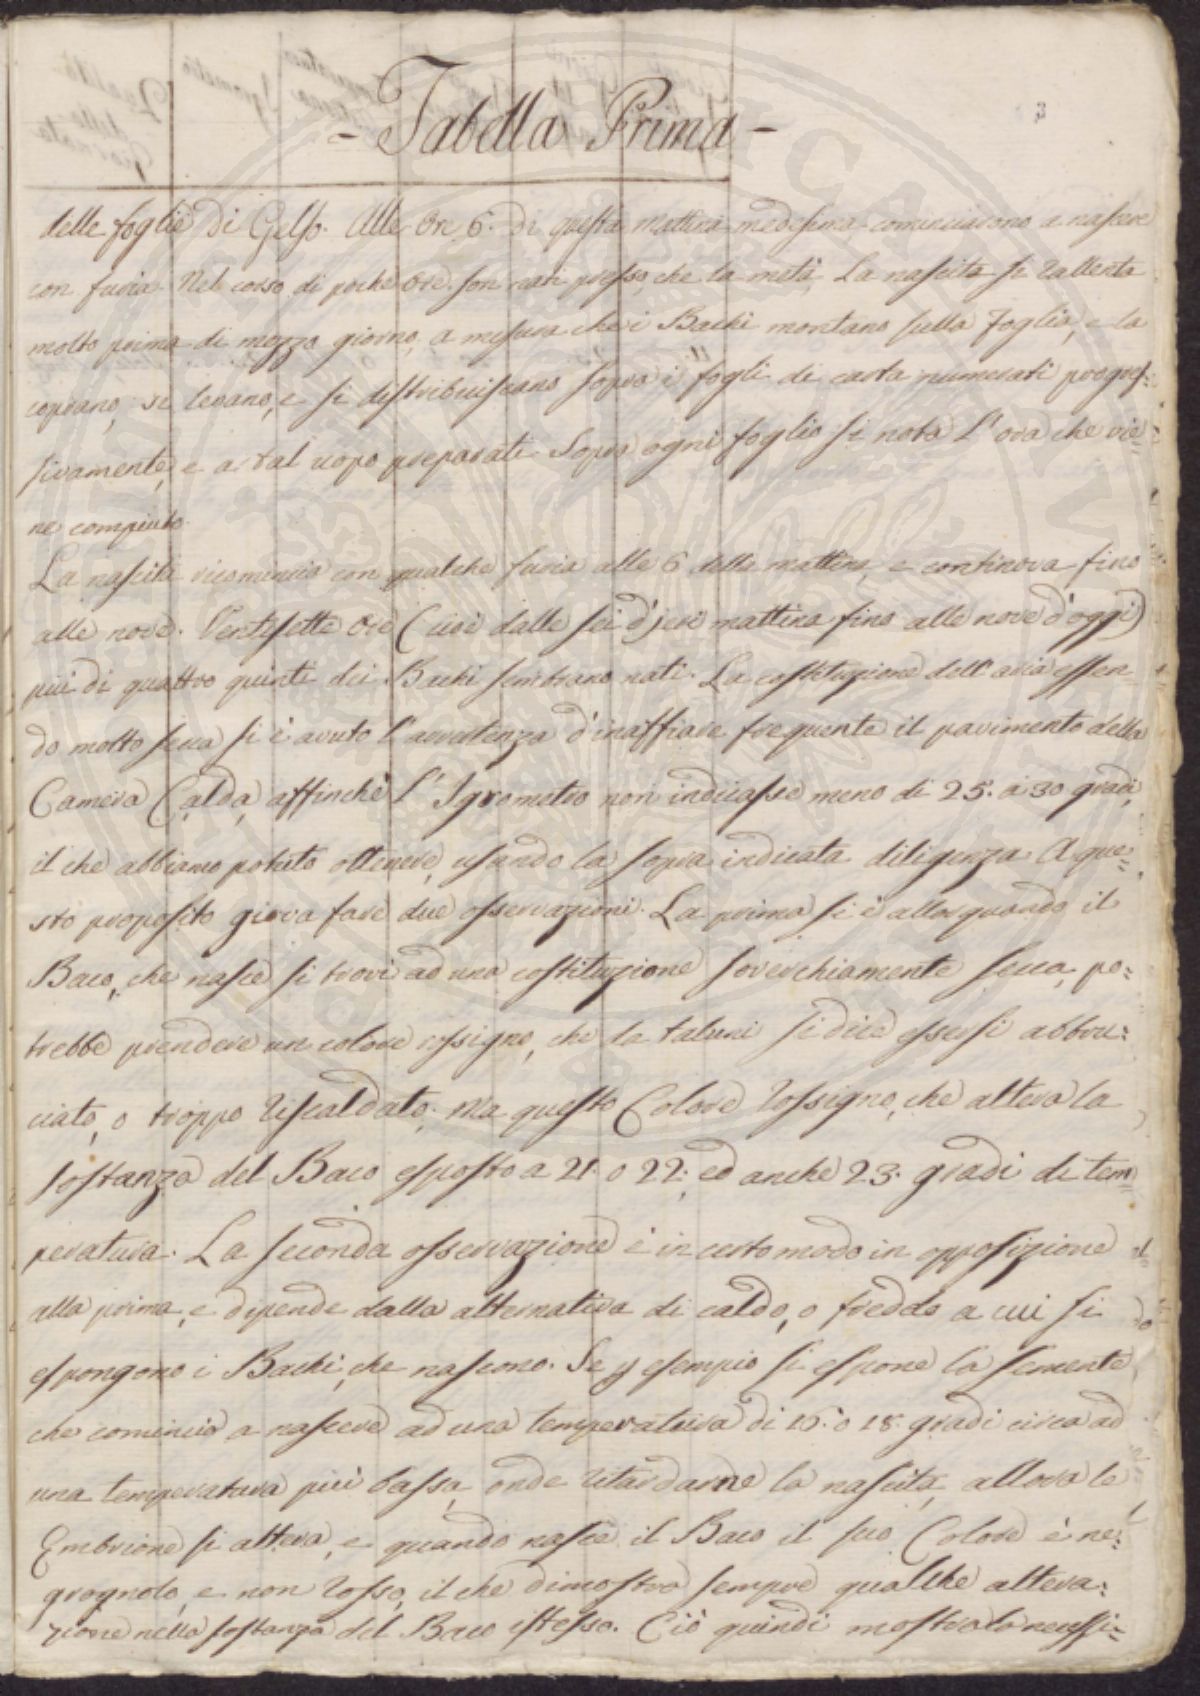 3
- Tabella Prima -
delle foglie di Gelso. Alle Ore 6. di questa mattina medesima cominciarono a nascere
con furia. Nel corso di poche Ore son nati presso che la metà. La nascita si rallenta
molto prima di mezzo giorno, a misura che i Bachi montano sulla Foglia, e la
coprano, si levano, e si distribuiscano sopra i fogli di carta numerati progres=
sivamente, e a tal uopo preparati. Sopra ogni foglio si nota l'ora che vie=
ne compiuto.
La nascita ricomincia con qualche furia alle 6 della mattina, e continova fino
alle nove. Ventisette Ore (cioè dalle sei d'jeri mattina fino alle nove d'oggi)
più di quattro quinti dei Bachi sembrano nati. La costituzione dell'aria essen=
do molto secca si è avuto l'avvertenza d'inaffiare frequente il pavimento della
Camera Calda, affinchè l'Igrometro non indicasse meno di 25. a 30 gradi,
il che abbiamo potuto ottenere, usando la sopra indicata diligenza. A que=
sto proposito giova fare due osservazioni. La prima si è allorquando il
Baco, che nasce si trovi ad una costituzione soverchiamente secca, po=
trebbe prendere un colore rossigno, che da taluni si dice essersi abbru=
ciato, o troppo riscaldato. Ma questo Colore rossigno, che altera la
sostanza del Baco esposto a 21. o 22. ed anche 23. gradi di tem=
peratura. La seconda osservazione è in certo modo in opposizione
alla prima, e dipende dalla alternativa di caldo, o freddo a cui si
espongono i Bachi, che nascono. Se p esempio si espone la semente
che comincia a nascere ad una temperatura di 16. o 18. gradi circa ad
una temperatura più bassa, onde ritardarne la nascita, allora le
Embrione si altera, e quando nasce il Baco il suo Colore è ne=
grognolo, e non rosso, il che dimostra sempre qualche altera=
zione nella sostanza del Baco istesso. Ciò quindi mostra la necessi=